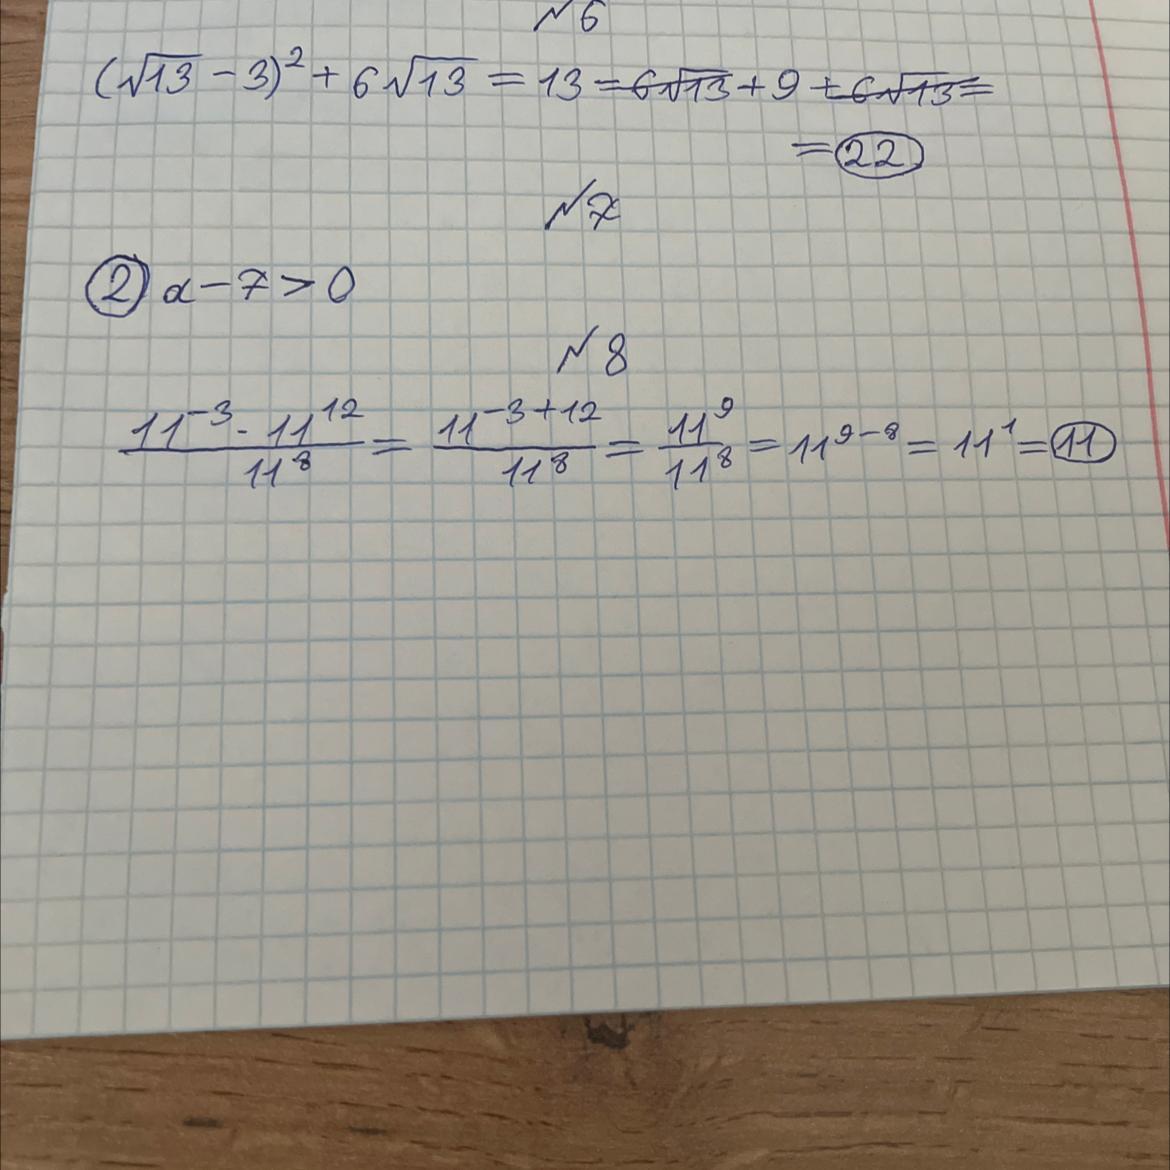 №6
(√13 - 3)² + 6√13 = 13 - 6√13 + 9 + 6√13 =
= 22
№7
2) a - 7 > 0
№8
11⁻³ · 11¹² / 11⁸ = 11⁻³⁺¹² / 11⁸ = 11⁹ / 11⁸ = 11⁹⁻⁸ = 11¹ = 11